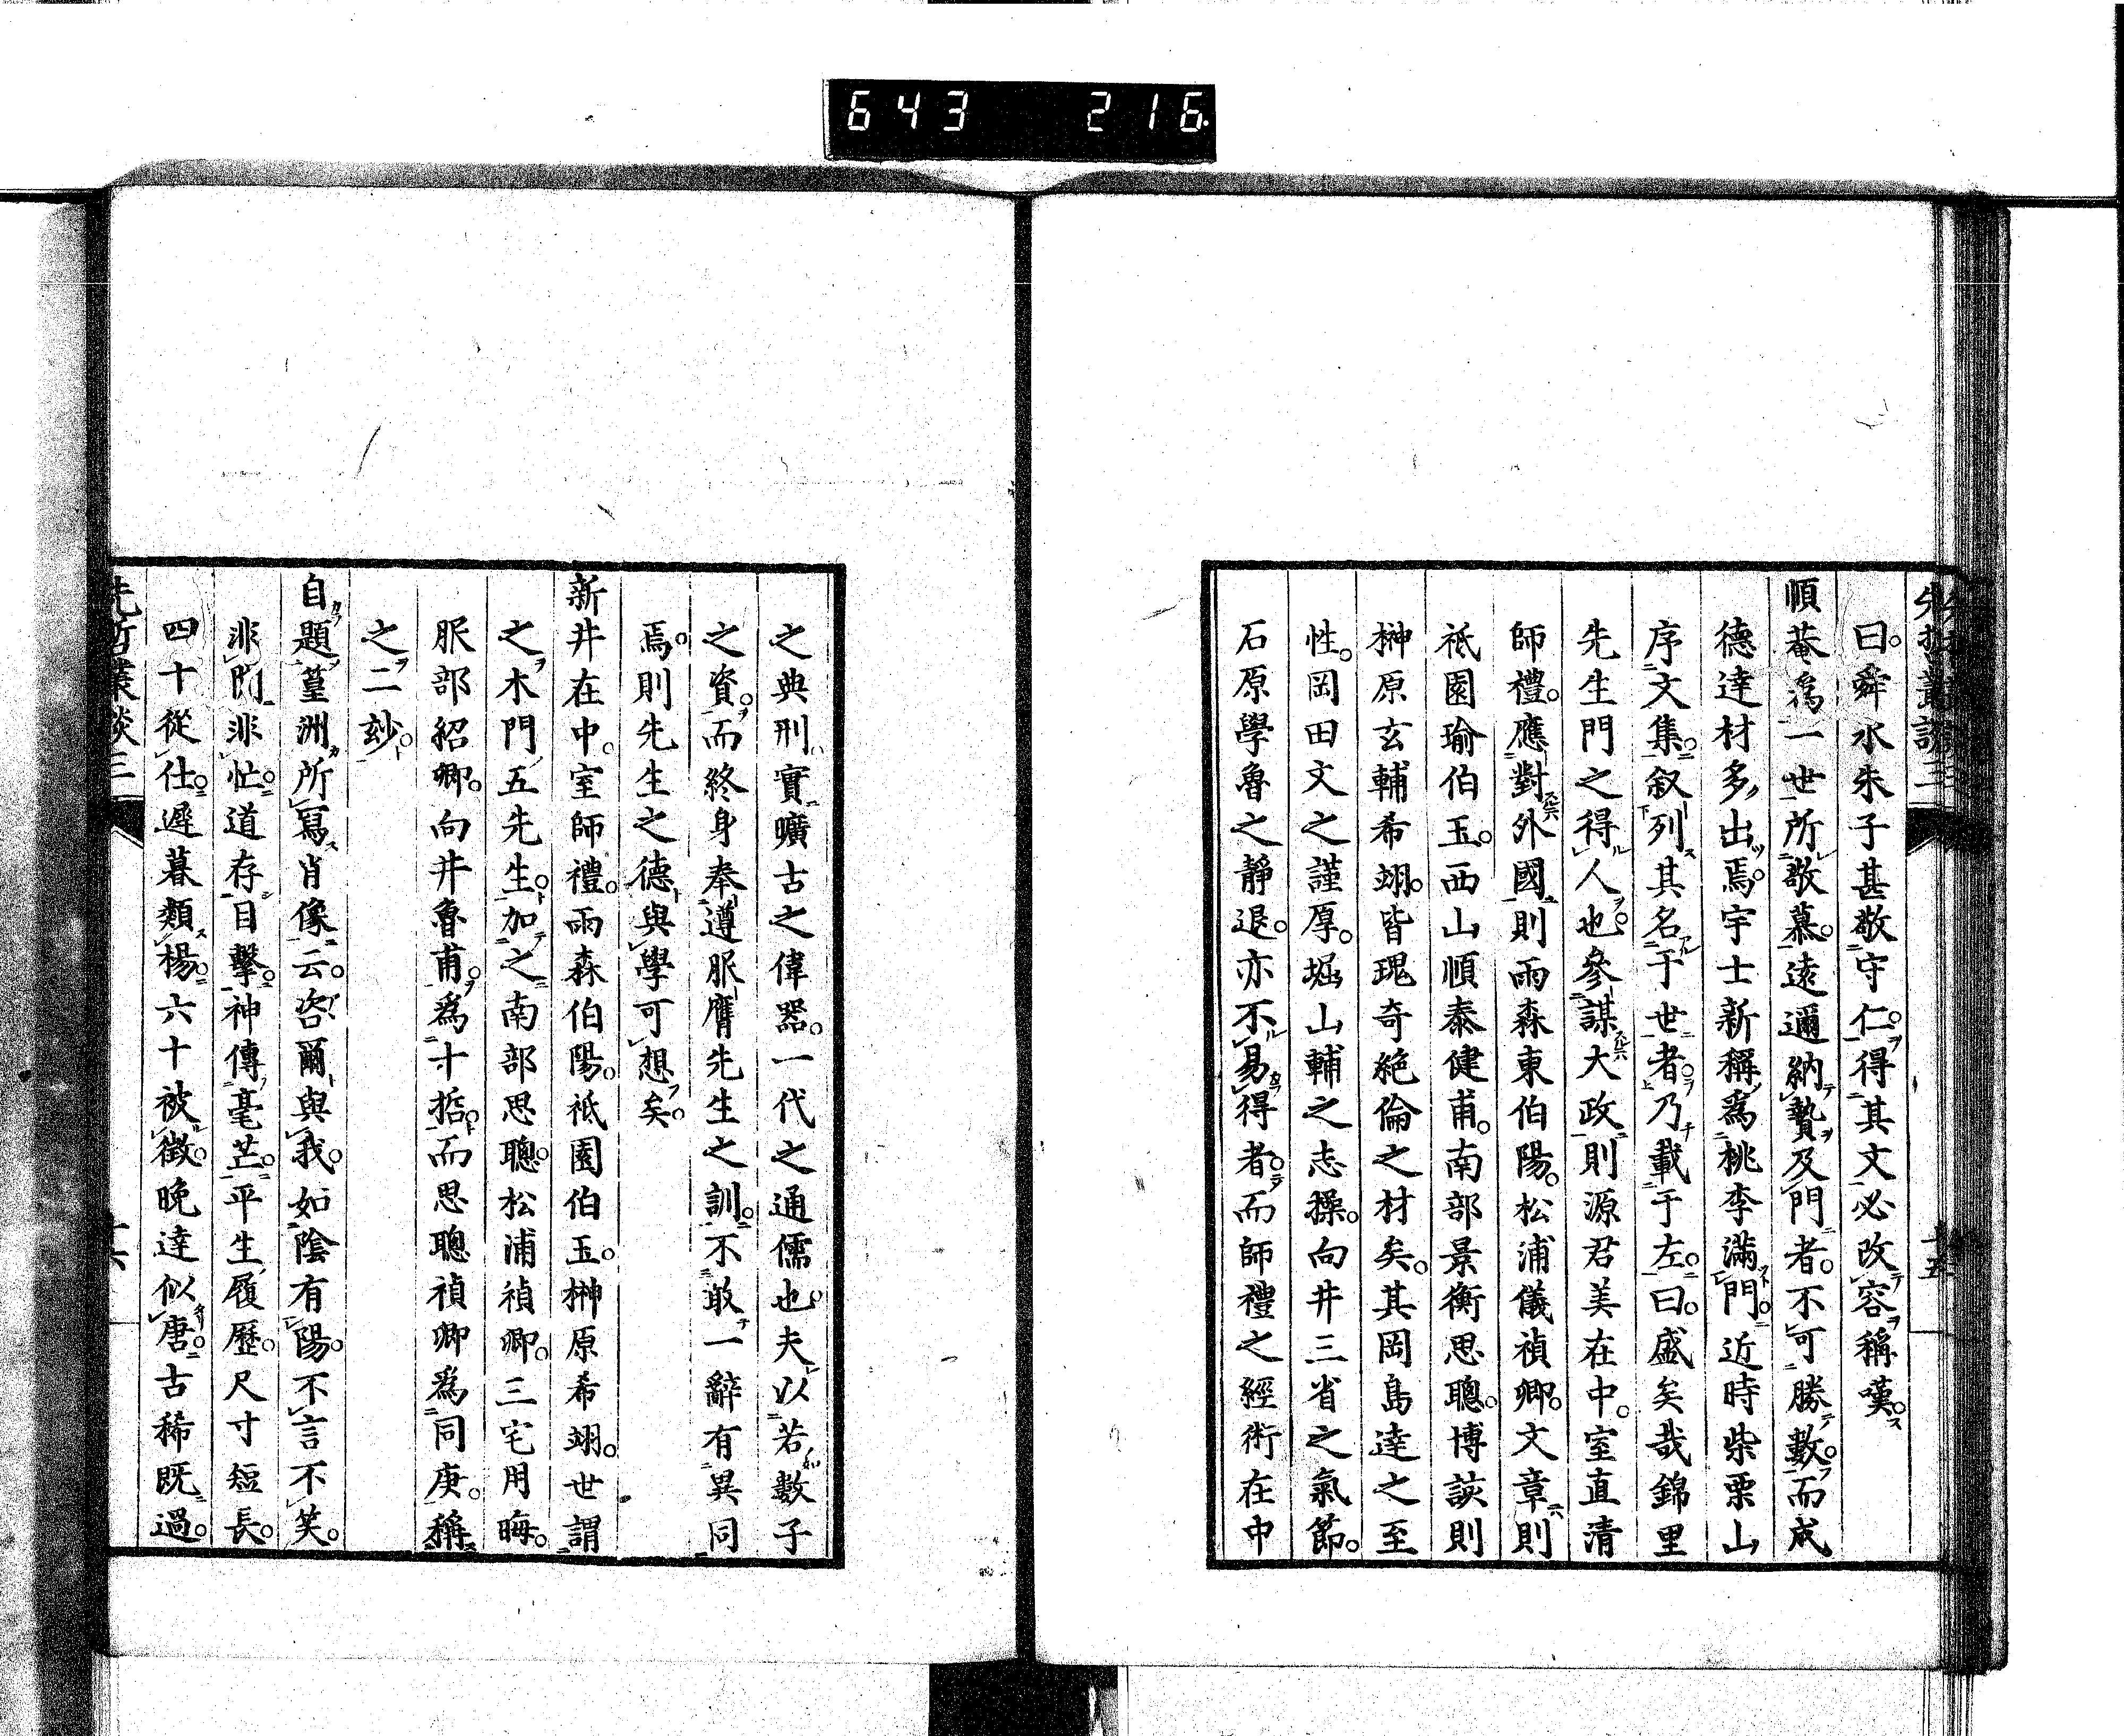 643 216
曰。舜水朱子甚敬守仁。得其文必改容稱嘆。
順菴為一世所敬慕。遠邇納贄及門者。不可勝數。而成
德達材多出焉。宇士新稱為桃李滿門。近時柴栗山
序文集。叙列其名于世者。乃載于左。曰。盛矣哉錦里
先生門之得人也。參謀大政則源君美在中。室直清
師禮。應對外國則雨森東伯陽。松浦儀禎卿。文章則
祇園瑜伯玉。西山順泰健甫。南部景衡思聰。博該則
榊原玄輔希翊。皆瑰奇絶倫之材矣。其岡島達之至
性。岡田文之謹厚。堀山輔之志操。向井三省之氣節。
石原學魯之靜退。亦不易得者。而師禮之經術在中
之典刑實曠古之偉器。一代之通儒也。夫以若數子
之資。而終身奉遵服膺先生之訓。不敢一辭有異同
焉。則先生之德與學可想矣。
新井在中。室師禮。雨森伯陽。祇園伯玉。榊原希翊。世謂
之木門五先生。加之南部思聰。松浦禎卿。三宅用晦。
服部紹卿。向井魯甫。為十哲。而思聰禎卿為同庚。稱
之二玅。
自題篁洲所寫肖像云。咨爾與我。如陰有陽。不言不笑。
非閙非忙。道存目擊。神傳毫芒。平生履歷。尺寸短長。
四十從仕。遲暮類楊。六十被徵。晚達似唐。古稀既過。
先哲叢談三